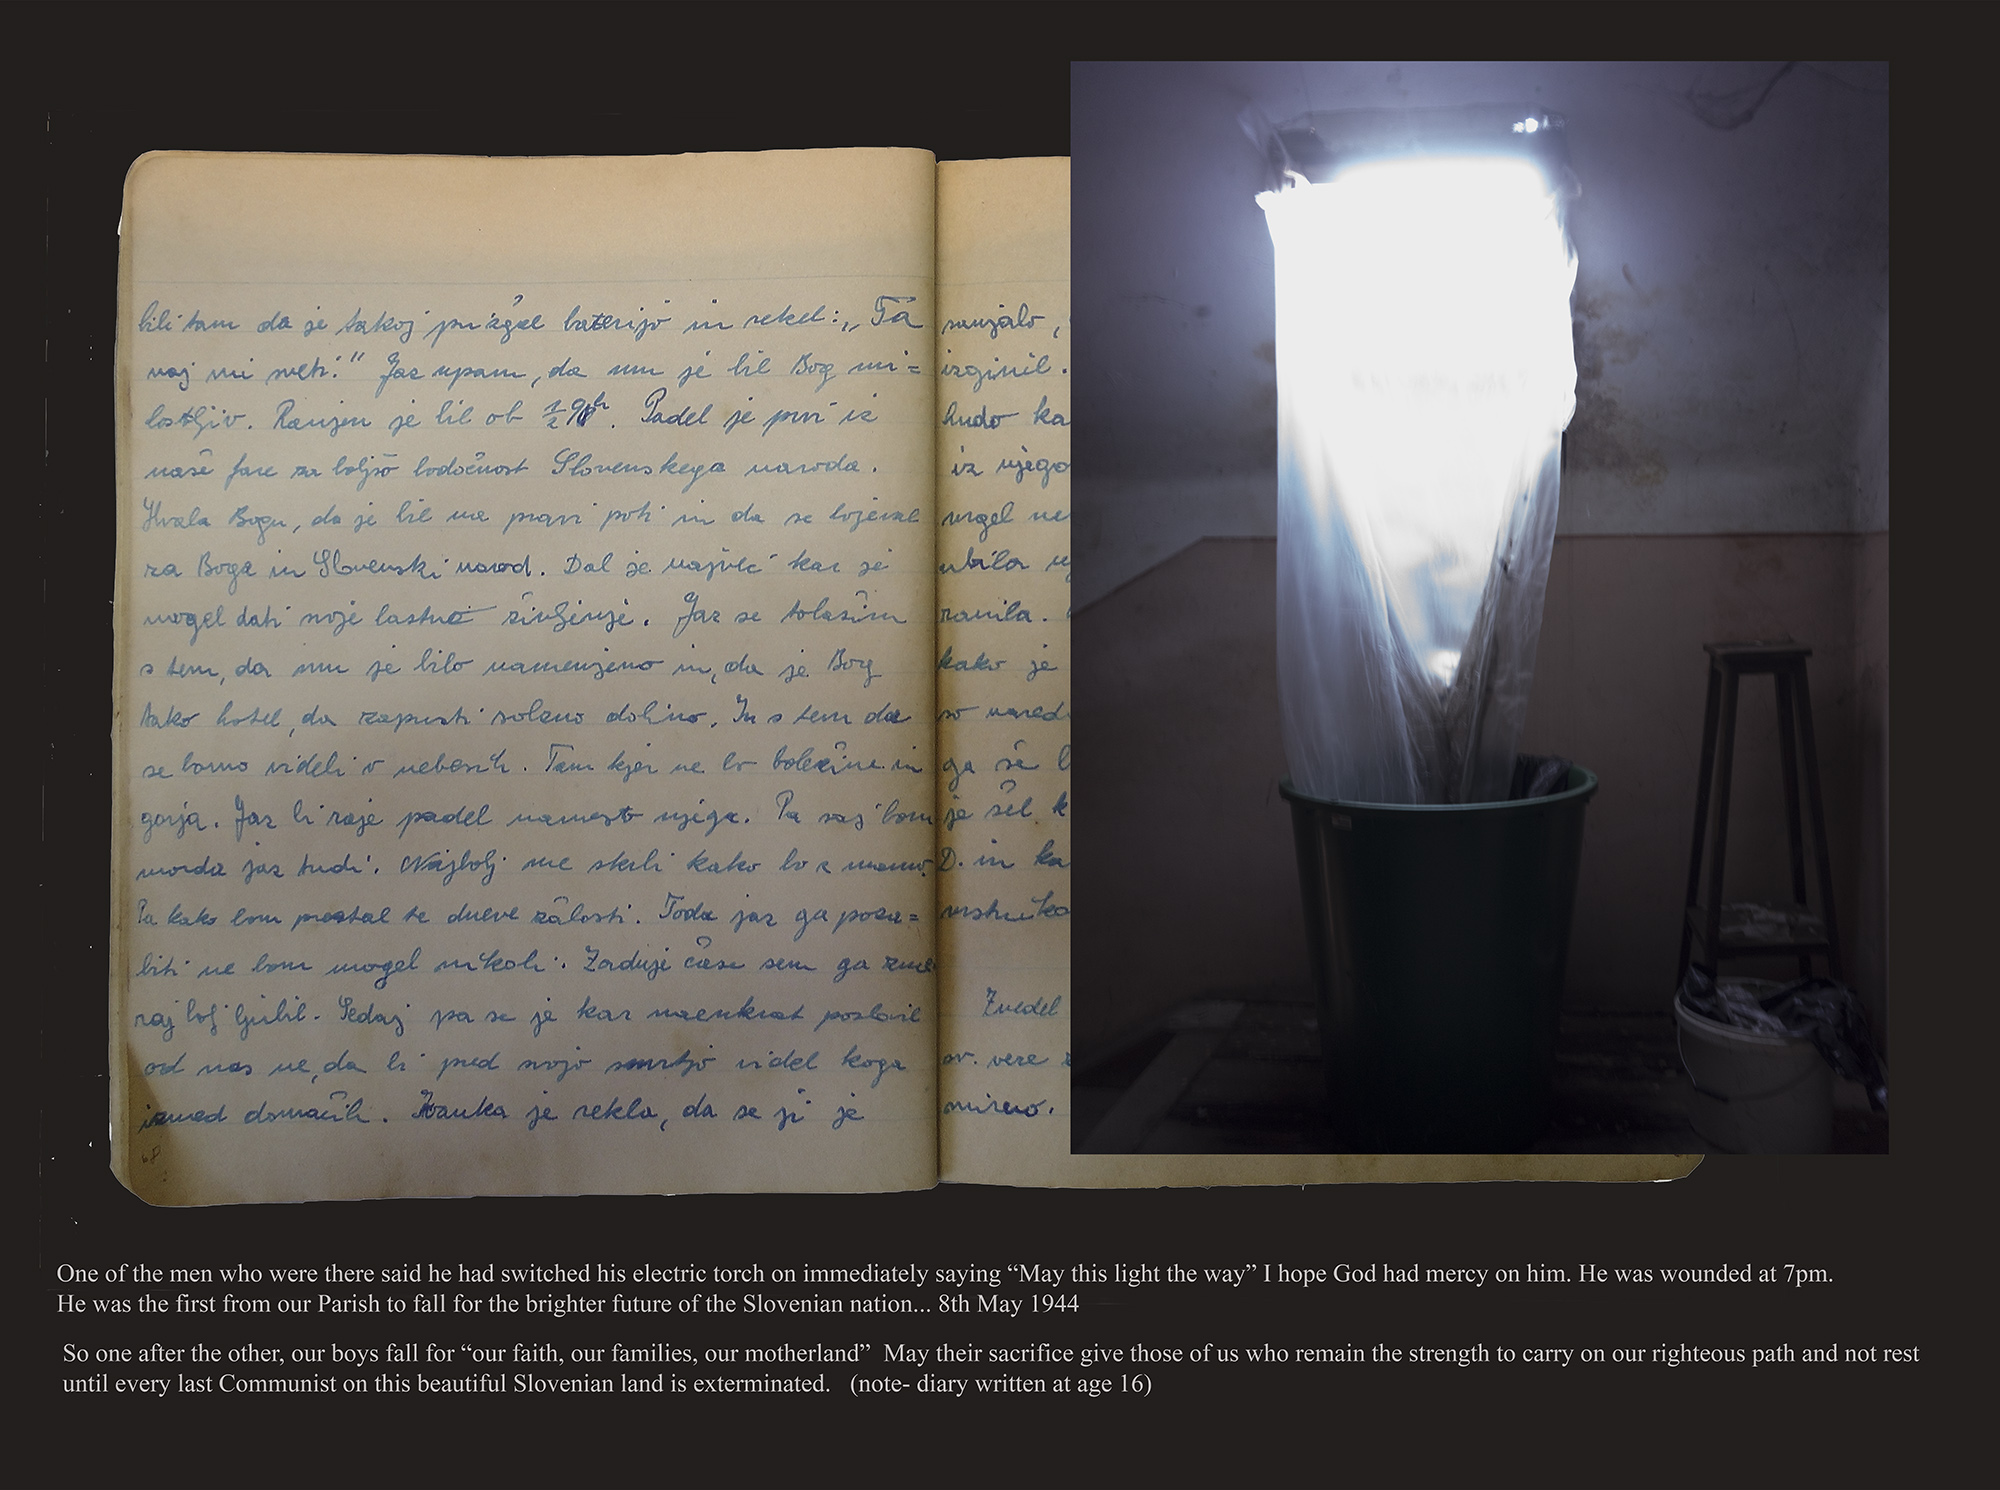 bili tam da je takoj prižgal baterijo in rekel: „Ta
naj mi sveti." Jaz upam, da mu je bil Bog mi=
lostljiv. Ranjen je bil ob
Padel je prvi iz
naše fare za boljšo bodočnost Slovenskega naroda.
Hvala Bogu, da je bil na pravi poti in da se bojeval
za Boga in Slovenski narod. Dal je največ kar je
mogel dati svoje lastno življenje. Jaz se tolažim
s tem, da mu je bilo namenjeno in, da je Bog
tako hotel, da zapusti solzno dolino. In s tem da
se bomo videli v nebesih. Tam kjer ne bo bolečine in
gorja. Jaz bi raje padel namesto njega. Pa saj bom
morda jaz tudi. Najbolj me skrbi kako bo z mamo.
Pa kako bom prestal te dneve žalosti. Toda jaz ga poza=
biti ne bom mogel nikoli. Zadnje čase sem ga zme
raj bolj ljubil. Sedaj pa se je kar naenkrat poslovil
od nas ne, da bi pred svojo smrtjo videl koga
izmed domačih. Ivanka je rekla, da se ji je
68
sanjalo,
izginil.
hudo ka
iz njego
vrgel ne
ubila nj
ranila.
kako je
so nared
ga še b
je šel k
D. in ka
Zvedel
sv. vere
mirno.
One of the men who were there said he had switched his electric torch on immediately saying “May this light the way” I hope God had mercy on him. He was wounded at 7pm.
He was the first from our Parish to fall for the brighter future of the Slovenian nation... 8th May 1944
So one after the other, our boys fall for “our faith, our families, our motherland” May their sacrifice give those of us who remain the strength to carry on our righteous path and not rest
until every last Communist on this beautiful Slovenian land is exterminated. (note- diary written at age 16)